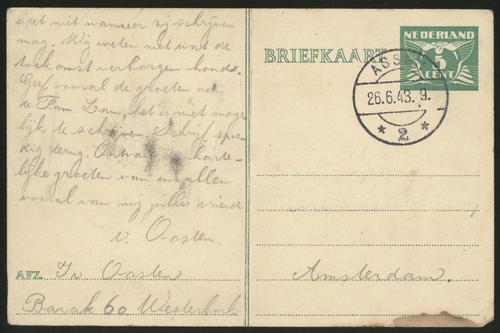 weet niet wanneer zij schrijven
mag. Wij weten niet wat de
toekomst verborgen houdt.
Geef vooral de groeten aan
de Fam. het is niet moge
lijk te schrijven. Schrijf spoe
dig terug. Ontvang de harte-
lijke groeten van ons allen
vooral van mij jullie vriend
v. Oosten.
AFZ. Oosten
Barak 60 Westerbork
BRIEFKAART
NEDERLAND
5
CENT
ASS
26.6.43. 9.
* 2 *
Amsterdam.